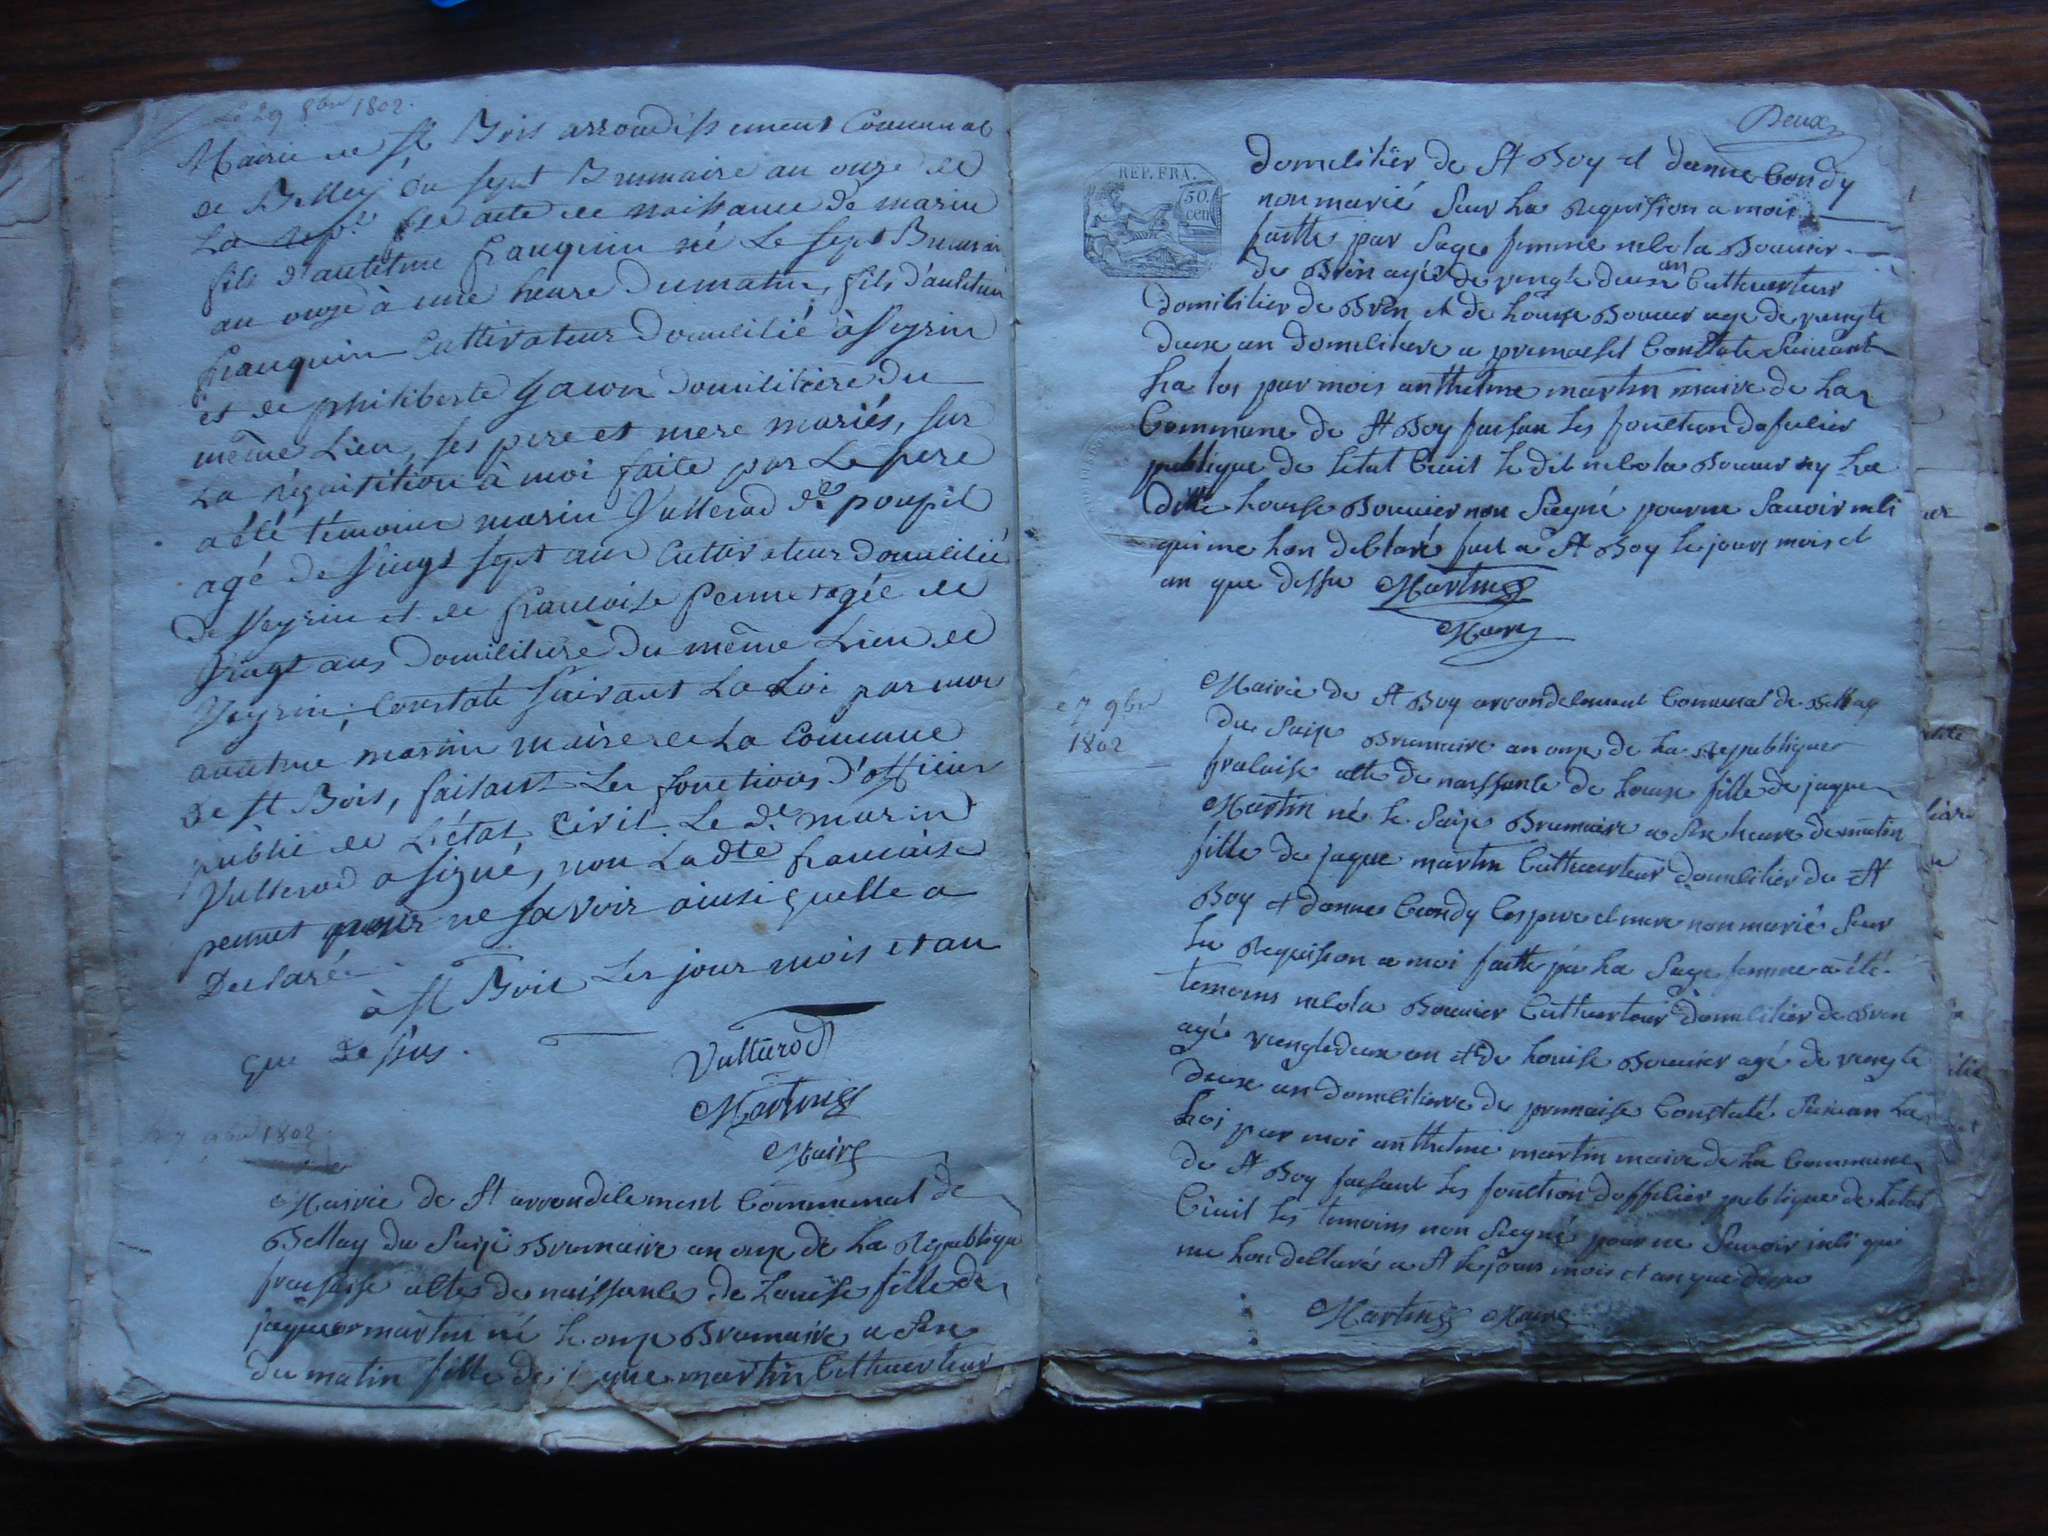 Le 29 8bre 1802.
Mairie de St Bois arrondissement Communal
de Belley du sept Brumaire an onze de
La acte de naissance de marin
fils d'antelme franquin né Le sept Brumaire
an onze à une heure Dumatin, fils d'antelme
franquin Cultivateur Domicilié à Veyrin
et de philiberte gacon Domiciliére du
même Lieu, ses pere et mere mariés, sur
La réquisition à moi faite par Le pere
a été témoin marin Vullerod dt poupit
agé de Vingt sept ans Cultivateur Domicilié
de Veyrin et de francoise pennet agée de
Vingt ans Domiciliere Du même Lieu de
Veyrin; Constaté Suivant La Loi par moi
martin maire de La Commune
de St Bois, faisant Les fonctions d'officier
public de L'état Civil. Le dt marin
Vullerod a signé, non Ladte francaise
pennet pour ne savoir ainsi quelle a
Declaré
à St Bois Les jour mois et an
que Dessus.
Vullerod
Marting
Maire
7 9bre 1802.
Mairie de St arrondelement Communal de
Bellay du Saize Brumaire an onze de La Republique
fransaise acte de naissance de Louise fille de
jaque martin né le onze Brumaire a Six
du matin fille de jaque martin Cultuerteur
Deux
REP. FRA.
50.
cen
domilitier de St Boy et danne Condy
non marié Sur La Requision a moi
faitte par Sage femme nicola Bouvier
de Bren agé de vingte deux an Cultuerteur
domilitier de Bren et de Louise Bouvier age de vengte
deux an domilitiere a premaisel Constate Suivant
La loi par moi anthelme martin maire de La
Commune de St Boy faisan les fonction dofisier
publique de letat Civil le dit nicola Bouvier ny La
ditte Louise Bouvier non Siegné pour ne Savoir
qui me lon declaré fait a St Boy le jour mois et
an que dessu Marting
Maire
7 9bre
1802
Mairie de St Boy arrondelement Communal de Bellay
du Saize Brumaire an onze de La Republique
fralaise acte de naissance de Louise fille de jaque
Martin né le Saize Brumaire a Six heure de matin
fille de jaque martin Cultuerteur domilitier de St
Boy et danne Condy Ces pere et mere non marié Sur
La Requision a moi faitte par La Sage femme a été
temoins nicola Bouvier Cultuerteur domilitier de Bren
agé vengtedeux an et de Louise Bouvier agé de vengte
deux an domilitiere de premaise Constaté Suivan La
Loi par moi anthelme martin maire de La Commune
de St Boy faisant les fonction dofficier publique de letat
Civil les temoins non Siegné pour ne Savoir qui
me lon declaré a St le jour mois et an que dessu
Marting Maire